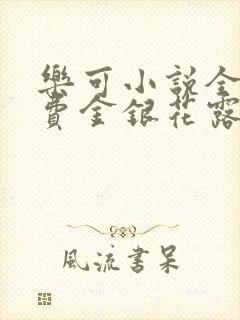 樂可小說全
費金銀花露
風流書呆